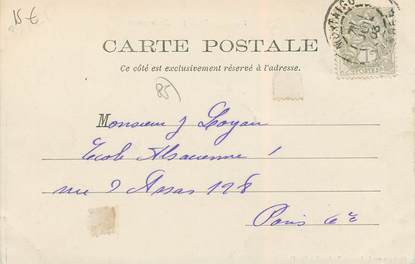 15 €
CARTE POSTALE
Ce côté est exclusivement réservé à l'adresse.
85
Monsieur J Loyau
Ecole Alsacienne
rue d'Assas 128
Paris 6e